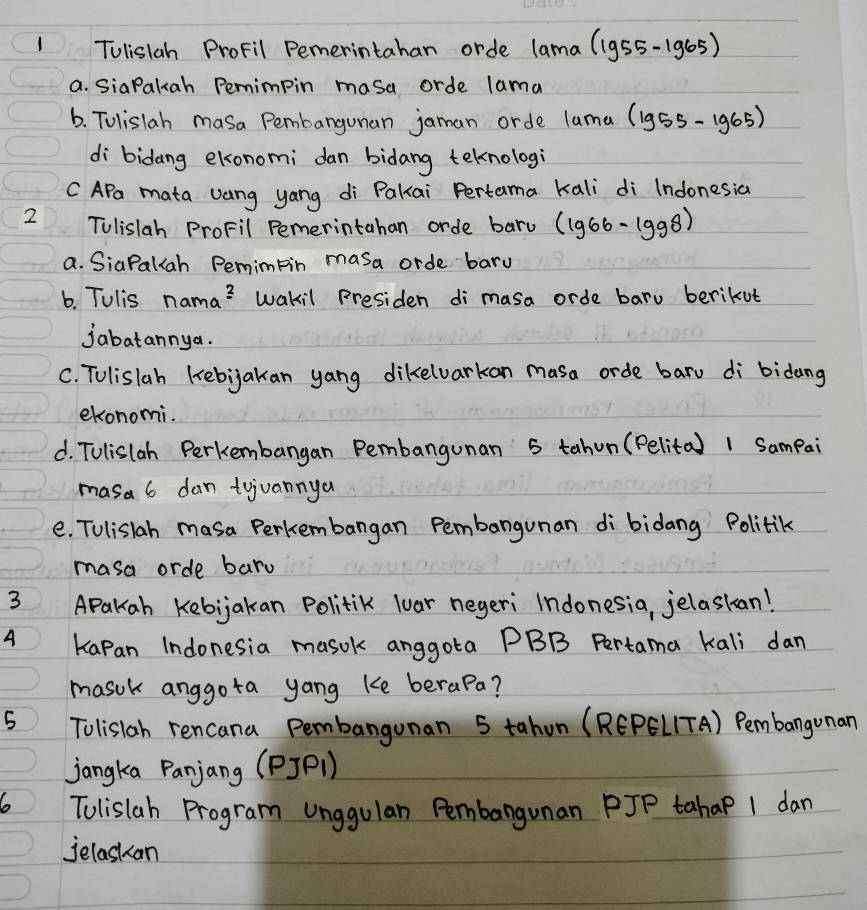 1 Tulislah Profil Pemerintahan orde lama (1955-1965)
a. Siapakah Pemimpin masa orde lama
b. Tulislah masa Pembangunan jaman orde lama (1955-1965)
di bidang ekonomi dan bidang teknologi
c Apa mata uang yang di Pakai Pertama kali di Indonesia
2 Tulislah Profil Pemerintahan orde baru (1966-1998)
a. Siapakah Pemimpin masa orde baru
b. Tulis nama² wakil Presiden di masa orde baru berikut
jabatannya.
c. Tulislah kebijakan yang dikeluarkan masa orde baru di bidang
ekonomi.
d. Tulislah Perkembangan Pembangunan 5 tahun (Pelita) 1 Sampai
masa 6 dan tujuannya
e. Tulislah masa Perkembangan Pembangunan di bidang Politik
masa orde baru
3 Apakah kebijakan Politik luar negeri Indonesia, jelaskan!
4 Kapan Indonesia masuk anggota PBB Pertama kali dan
masuk anggota yang ke berapa?
5 Tulislah rencana Pembangunan 5 tahun (REPELITA) Pembangunan
jangka Panjang (PJP1)
6 Tulislah Program unggulan Pembangunan PJP tahap 1 dan
jelaskan